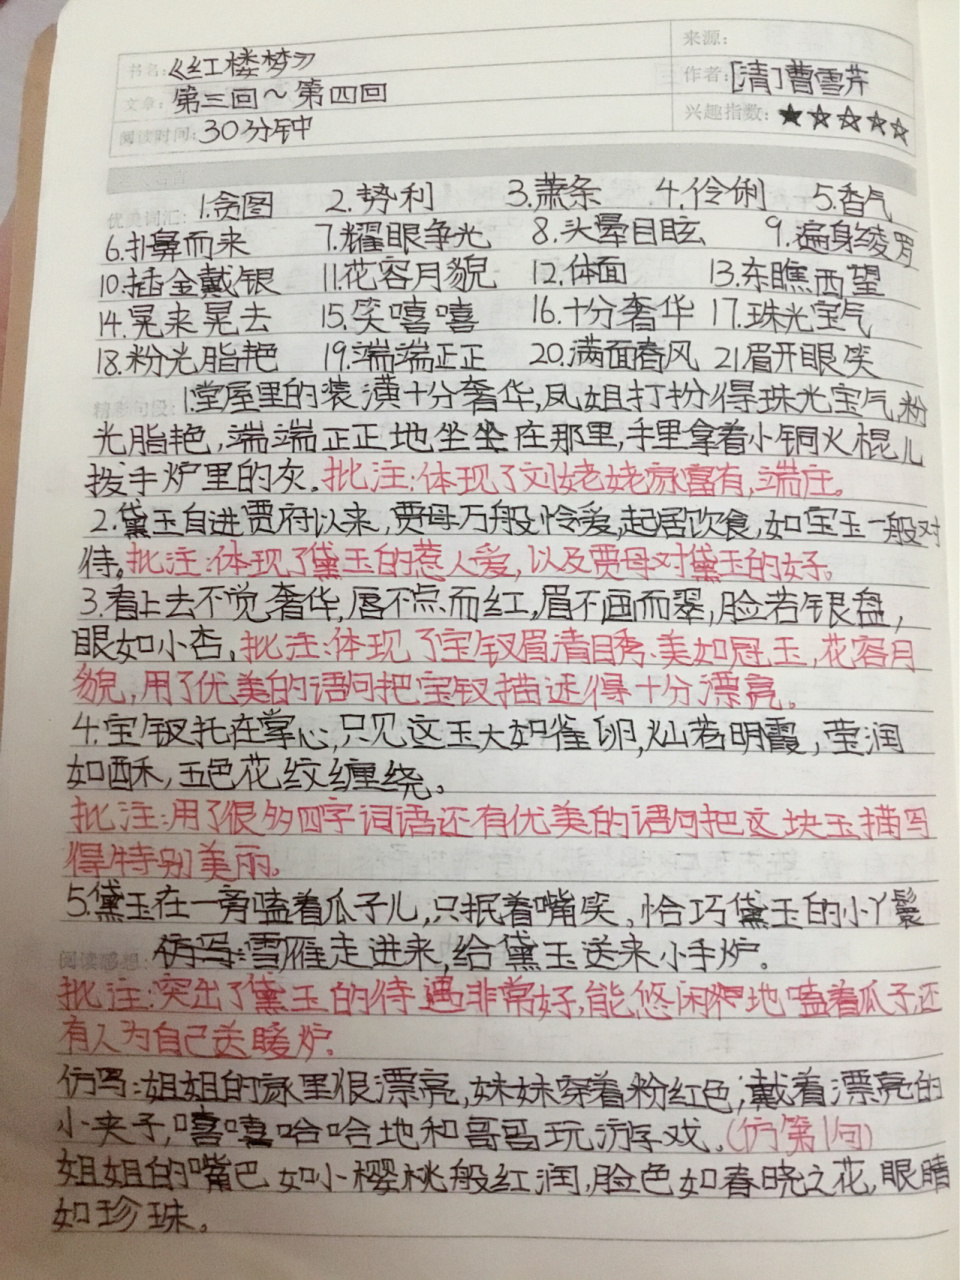 来源:
书名:《红楼梦》
作者:[清]曹雪芹
文章:第三回~第四回
兴趣指数:★☆☆☆☆
阅读时间:30分钟
优美词汇: 1.贪图 2.势利 3.萧条 4.伶俐 5.香气
6.扑鼻而来 7.耀眼争光 8.头晕目眩 9.遍身绫罗
10.插金戴银 11.花容月貌 12.体面 13.东瞧西望
14.晃来晃去 15.笑嘻嘻 16.十分奢华 17.珠光宝气
18.粉光脂艳 19.端端正正 20.满面春风 21眉开眼笑
精彩句段: 1.堂屋里的装潢十分奢华,凤姐打扮得珠光宝气,粉
光脂艳,端端正正地坐在那里,手里拿着小铜火棍儿
拨手炉里的灰。批注:体现了刘姥姥家富有,端庄。
2.黛玉自进贾府以来,贾母万般怜爱,起居饮食,如宝玉一般对
待。批注:体现了黛玉的惹人爱,以及贾母对黛玉的好。
3.看上去不觉奢华,唇不点而红,眉不画而翠,脸若银盘,
眼如小杏,批注:体现了宝钗眉清目秀、美如冠玉,花容月
貌,用了优美的语句把宝钗描述得十分漂亮。
4.宝钗托在掌心,只见这玉大如雀卵,灿若明霞,莹润
如酥,五色花纹缠绕。
批注:用了很多四字词语还有优美的语句把这块玉描写
得特别美丽。
5.黛玉在一旁嗑着瓜子儿,只抿着嘴笑。恰巧黛玉的小丫鬟
阅读感想: 仿写:雪雁走进来,给黛玉送来小手炉。
批注:突出了黛玉的待遇非常好,能悠闲地嗑着瓜子,还
有人为自己送暖炉。
仿写:姐姐的家里很漂亮,妹妹穿着粉红色,戴着漂亮的
小夹子,嘻嘻哈哈地和哥哥玩游字戏。(仿第1句)
姐姐的嘴巴如小樱桃般红润,脸色如春晓之花,眼睛
如珍珠。